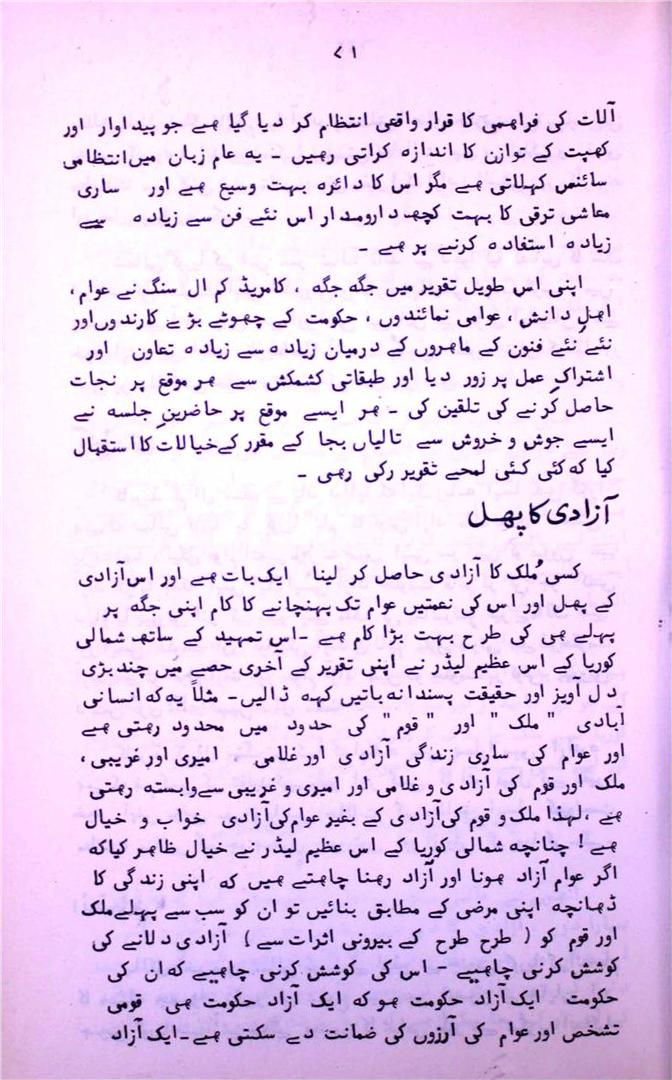 ۷۱
آلات کی فراہمی کا قرار واقعی انتظام کر دیا گیا ہے جو پیداوار اور
کھپت کے توازن کا اندازہ کراتی رہیں ۔ یہ عام زبان میں انتظامی
سائنس کہلاتی ہے مگر اس کا دائرہ بہت وسیع ہے اور ساری
معاشی ترقی کا بہت کچھ دارومدار اس نئے فن سے زیادہ سے
زیادہ استفادہ کرنے پر ہے ۔
اپنی اس طویل تقریر میں جگہ جگہ ، کامریڈ کم ال سنگ نے عوام،
اہلِ دانش ، عوامی نمائندوں ، حکومت کے چھوٹے بڑے کارندوں اور
نئے نئے فنون کے ماہروں کے درمیان زیادہ سے زیادہ تعاون اور
اشتراکِ عمل پر زور دیا اور طبقاتی کشمکش سے ہر موقع پر نجات
حاصل کرنے کی تلقین کی ۔ ہر ایسے موقع پر حاضرین جلسہ نے
ایسے جوش و خروش سے تالیاں بجا کے مقرر کے خیالات کا استقبال
کیا کہ کئی کئی لمحے تقریر رکی رہی ۔
آزادی کا پھل
کسی مُلک کا آزادی حاصل کر لینا ایک بات ہے اور اس آزادی
کے پھل اور اس کی نعمتیں عوام تک پہنچانے کا کام اپنی جگہ پر
پہلے ہی کی طرح بہت بڑا کام ہے ۔ اس تمہید کے ساتھ شمالی
کوریا کے اس عظیم لیڈر نے اپنی تقریر کے آخری حصے میں چند بڑی
دل آویز اور حقیقت پسندانہ باتیں کہہ ڈالیں ۔ مثلاً یہ کہ انسانی
آبادی "ملک" اور "قوم" کی حدود میں محدود رہتی ہے
اور عوام کی ساری زندگی آزادی اور غلامی ، امیری اور غریبی ،
ملک اور قوم کی آزادی و غلامی اور امیری و غریبی سے وابستہ رہتی
ہے ، لہذا ملک و قوم کی آزادی کے بغیر عوام کی آزادی خواب و خیال
ہے ! چنانچہ شمالی کوریا کے اس عظیم لیڈر نے خیال ظاہر کیا کہ
اگر عوام آزاد ہونا اور آزاد رہنا چاہتے ہیں کہ اپنی زندگی کا
ڈھانچہ اپنی مرضی کے مطابق بنائیں تو ان کو سب سے پہلے ملک
اور قوم کو ( طرح طرح کے بیرونی اثرات سے ) آزادی دلانے کی
کوشش کرنی چاہیے ۔ اس کی کوشش کرنی چاہیے کہ ان کی
حکومت ایک آزاد حکومت ہو کہ ایک آزاد حکومت ہی قومی
تشخص اور عوام کی آرزوں کی ضمانت دے سکتی ہے ۔ ایک آزاد